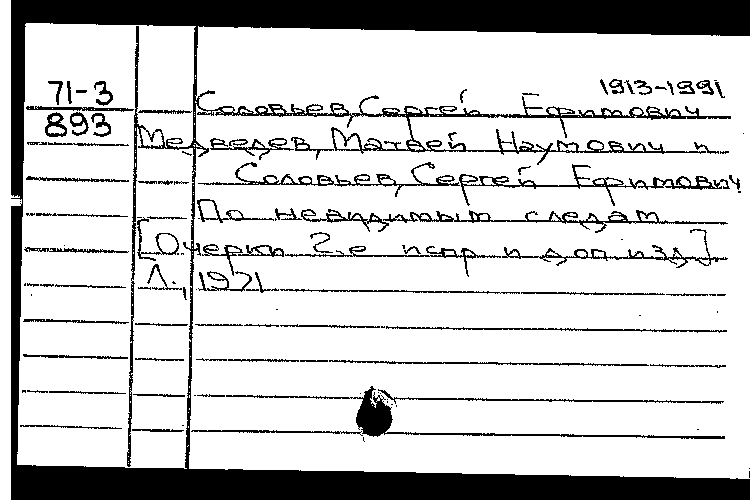 1913-1991
71-3 Соловьев, Сергей Ефимович
893 Медведев, Матвей Наумович и
Соловьев, Сергей Ефимович
По невидимым следам
[Очерки 2-е испр и доп изд].
Л., 1971